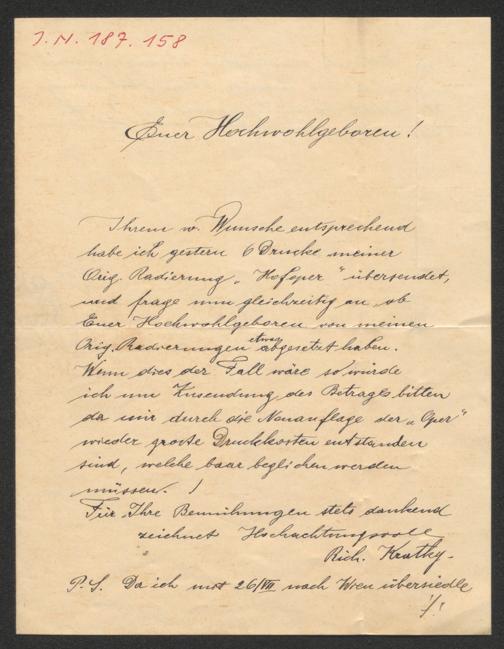 J. N. 187.158
Euer Hochwohlgeboren!
Ihrem w. Wunsche entsprechend
habe ich gestern 6 Drucke meiner
Orig. Radierung „Hofoper“ übersendet,
und frage nun gleichzeitig an, ob
Euer Hochwohlgeboren von meinen
Orig. Radierungen etwas abgesetzt haben.
Wenn dies der Fall wäre so würde
ich um Zusendung des Betrages bitten
da mir durch die Neuauflage der „Oper“
wieder große Druckkosten entstanden
sind, welche baar beglichen werden
müssen. !
Für Ihre Bemühungen stets dankend
zeichnet Hochachtungsvoll
Rich. Kratky.
P.S. Da ich mit 26/VII nach Wien übersiedle